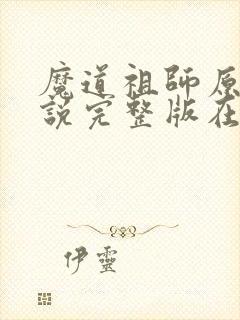 魔道祖師原
說完整版在
伊靈